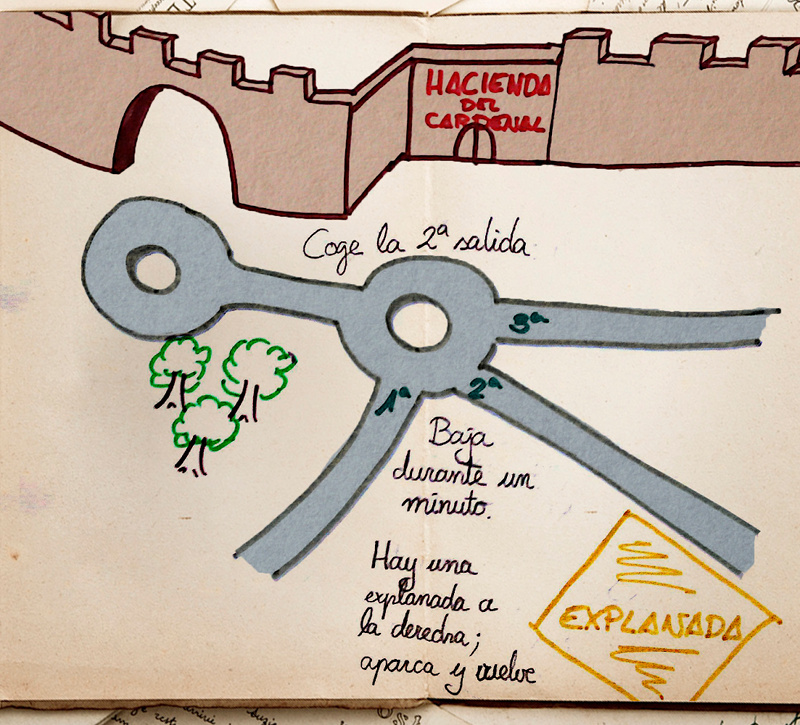 HACIENDA
DEL
CARDENAL
Coge la 2ª salida
3ª
1ª
2ª
Baja
durante un
minuto.
Hay una
explanada a
la derecha;
aparca y vuelve
EXPLANADA